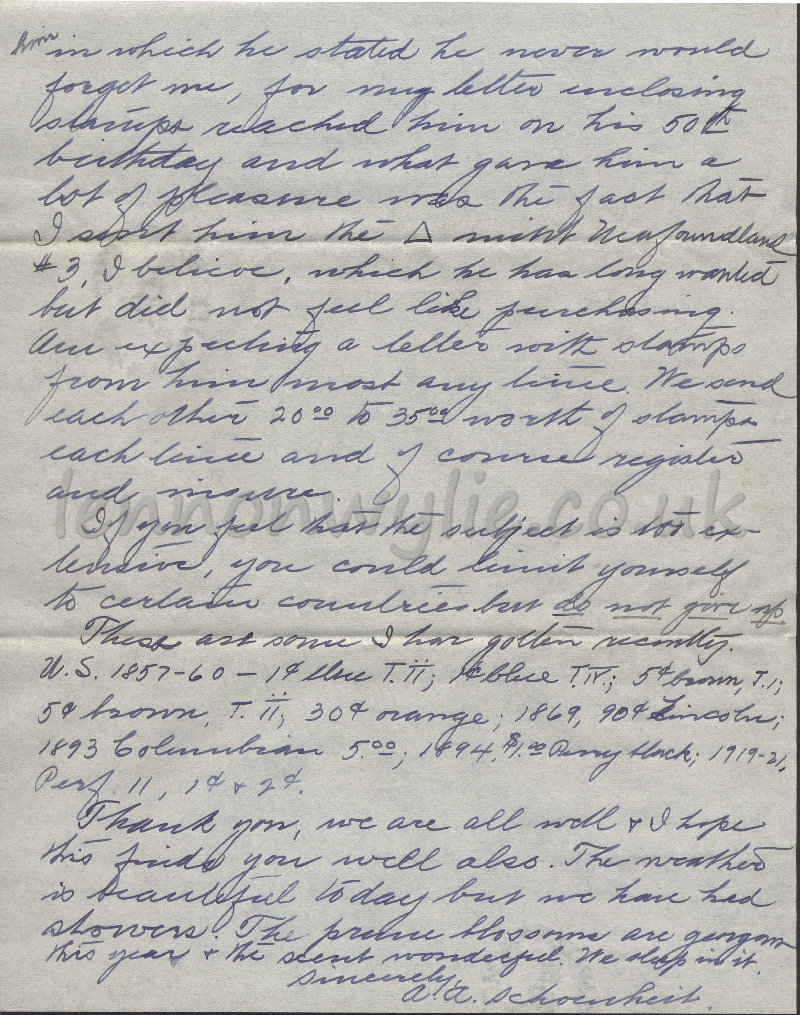 him in which he stated he never would
forget me, for my letter enclosing
stamps reached him on his 50th
birthday and what gave him a
lot of pleasure was the fact that
I sent him the △ mint Newfoundland
#3, I believe, which he has long wanted
but did not feel like purchasing.
Am expecting a letter with stamps
from him most any time. We send
each other 20.00 to 35.00 worth of stamps
each time and of course register
and insure.
If you feel that the subject is too ex-
tensive, you could limit yourself
to certain countries but do not give up
These are some I have gotten recently.
U.S. 1857-60 - 1¢ blue T.II; 1¢ blue T.IV.; 5¢ brown, T.I;
5¢ brown, T. II; 30¢ orange; 1869, 90¢ Lincoln;
1893 Columbian 5.00; 1894, $1.00 Perry black; 1919-21,
Perf. 11, 1¢ & 2¢.
Thank you, we are all well & I hope
this finds you well also. The weather
is beautiful today but we have had
showers. The prune blossoms are gorgeous
this year & the scent wonderful. We sleep in it.
Sincerely,
A. A. Schoenheit.
lennonwylie.co.uk